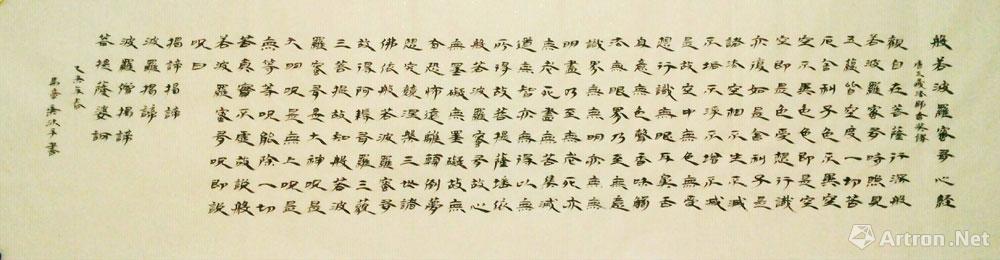 般若波羅蜜多心經
唐三藏法師玄奘譯
觀自在菩薩行深般
若波羅蜜多時照見
五蘊皆空度一切苦
厄舍利子色不異空
空不異色色即是空
空即是色受想行識
亦復如是舍利子是
諸法空相不生不滅
不垢不淨不增不減
是故空中無色無受
想行識無眼耳鼻舌
身意無色聲香味觸
法無眼界乃至無意
識界無無明亦無無
明盡乃至無老死亦
無老死盡無苦集滅
道無智亦無得以無
所得故菩提薩埵依
般若波羅蜜多故心
無罣礙無罣礙故無
有恐怖遠離顛倒夢
想究竟涅槃三世諸
佛依般若波羅蜜多
故得阿耨多羅三藐
三菩提故知般若波
羅蜜多是大神呪是
大明呪是無上呪是
無等等呪能除一切
苦真實不虛故說般
若波羅蜜多呪即說
呪曰
揭諦揭諦
波羅揭諦
波羅僧揭諦
菩提薩婆訶
乙未孟春
書
Artron.Net